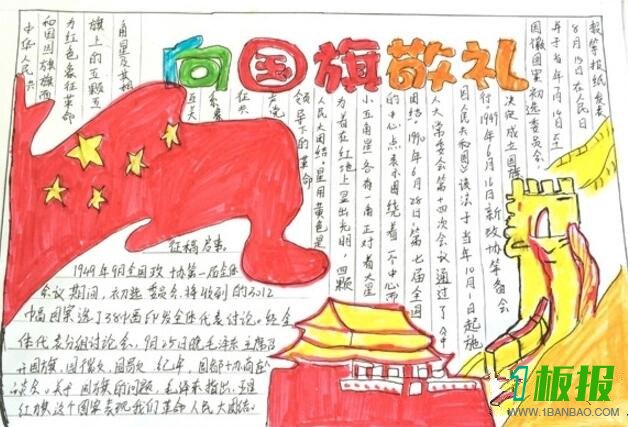 向国旗敬礼
中华人民共
和国国旗旗面
为红色象征革命
旗上的五颗五
角星及其相
互关
系象
征共
产党
领导下的革命
人民大团结。星用黄色是
为着在红地上显出光明,四颗
小五角星各有一角正对着大星
的中心点,表示围绕着一个中心而
团结。1990年6月28日第七届全国
人大常委会第十四次会议通过了《中
国人民共和国》该法于当年10月1日起施
行。1949年6月16日新政协筹备会
决定成立国旗
国徽国案初选委员会,
并于当年7月14日至
8月15日在人民日
报等报纸发表
征稿启事。
1949年9月全国政协第一届全体
会议期间,初选委员会将收到的3012
选了38
印发全体代表讨论。经全
体代表分组讨论会,9月25日晚毛泽东主席
国旗、国徽、国歌、纪年、国都
关于国旗的问题,毛泽东指出:
红旗这个图案表现我们革命人民大团结。
板报
WWW.1BANBAO.COM